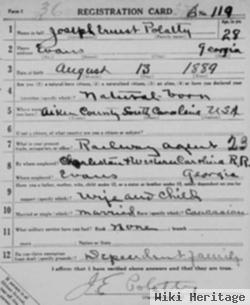 Form 1 36 REGISTRATION CARD No 119
1 Name in full Joseph Ernest Polatty Age in yrs. 28
2 Home address Evans Georgia
3 Date of birth August 13 1889
4 Natural-born
5 Where were you born? Aiken County South Carolina USA
6 If not a citizen, of what country are you a citizen or subject?
7 What is your present trade, occupation, or office? Railway agent 23
8 By whom employed? Charleston & Western Carolina R.R.
Where employed? Evans Georgia
9 Have you a father, mother, wife, child under 12, or a sister or brother under 12, solely dependent on you for support (specify which)? Wife and Child
10 Married or single (which)? Married Race (specify which)? Caucasian
11 What military service have you had? Rank None branch
years Nation or State
12 Do you claim exemption from draft (specify grounds)? Dependent family
I affirm that I have verified above answers and that they are true.
J E Polatty
Wiki Heritage